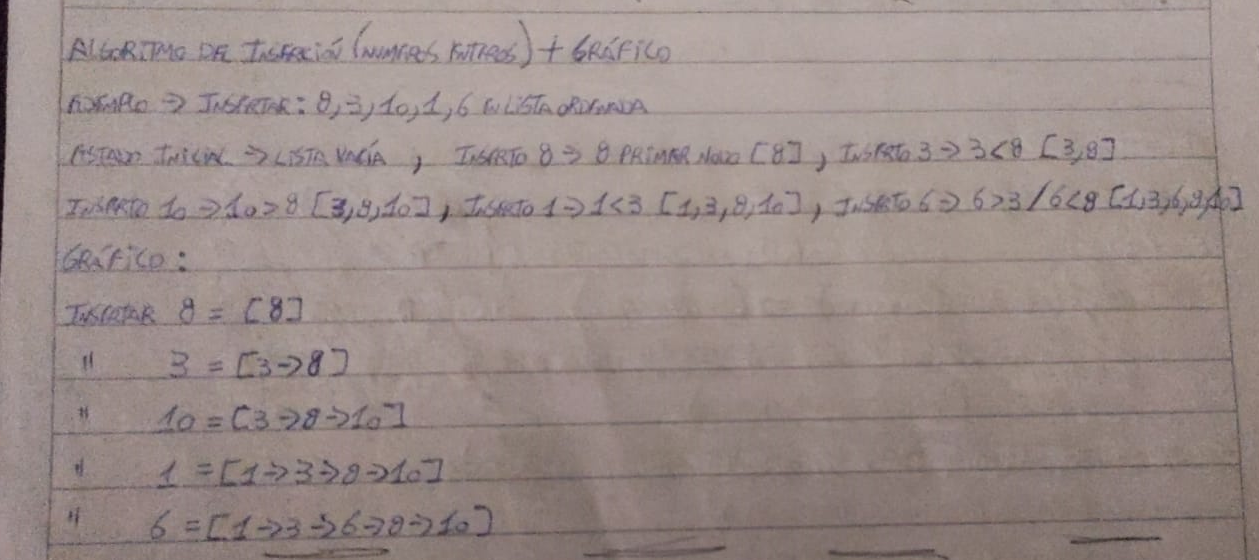 ALGORITMO DE INSERCIÓN (NUMEROS ENTEROS) + GRÁFICO
EJEMPLO => INSERTAR: 8, 3, 10, 1, 6 EN LISTA ORDENADA
ESTADO INICIAL -> LISTA VACÍA , INSERTO 8 -> 8 PRIMER NODO [8] , INSERTO 3 -> 3<8 [3,8]
INSERTO 10 -> 10>8 [3,8,10] , INSERTO 1 -> 1<3 [1,3,8,10] , INSERTO 6 -> 6>3 / 6<8 [1,3,6,8,10]
GRÁFICO :
INSERTAR 8 = [8]
" 3 = [3->8]
" 10 = [3->8->10]
" 1 = [1->3->8->10]
" 6 = [1->3->6->8->10]